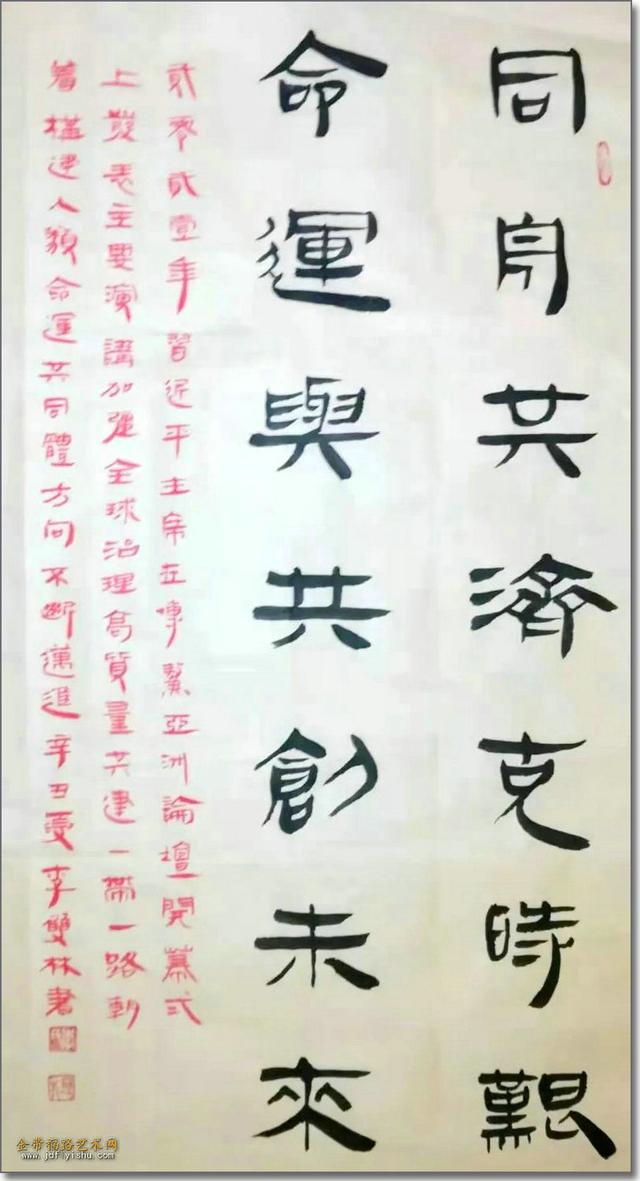 同舟共濟克時艱
命運與共創未來
貳零貳壹年習近平主席在博鰲亞洲論壇開幕式
上發表主要演講加強全球治理高質量共建一帶一路朝
着構建人類命運共同體方向不斷邁進辛丑夏李雙林書
金带福路艺术网
www.jdflyishu.com